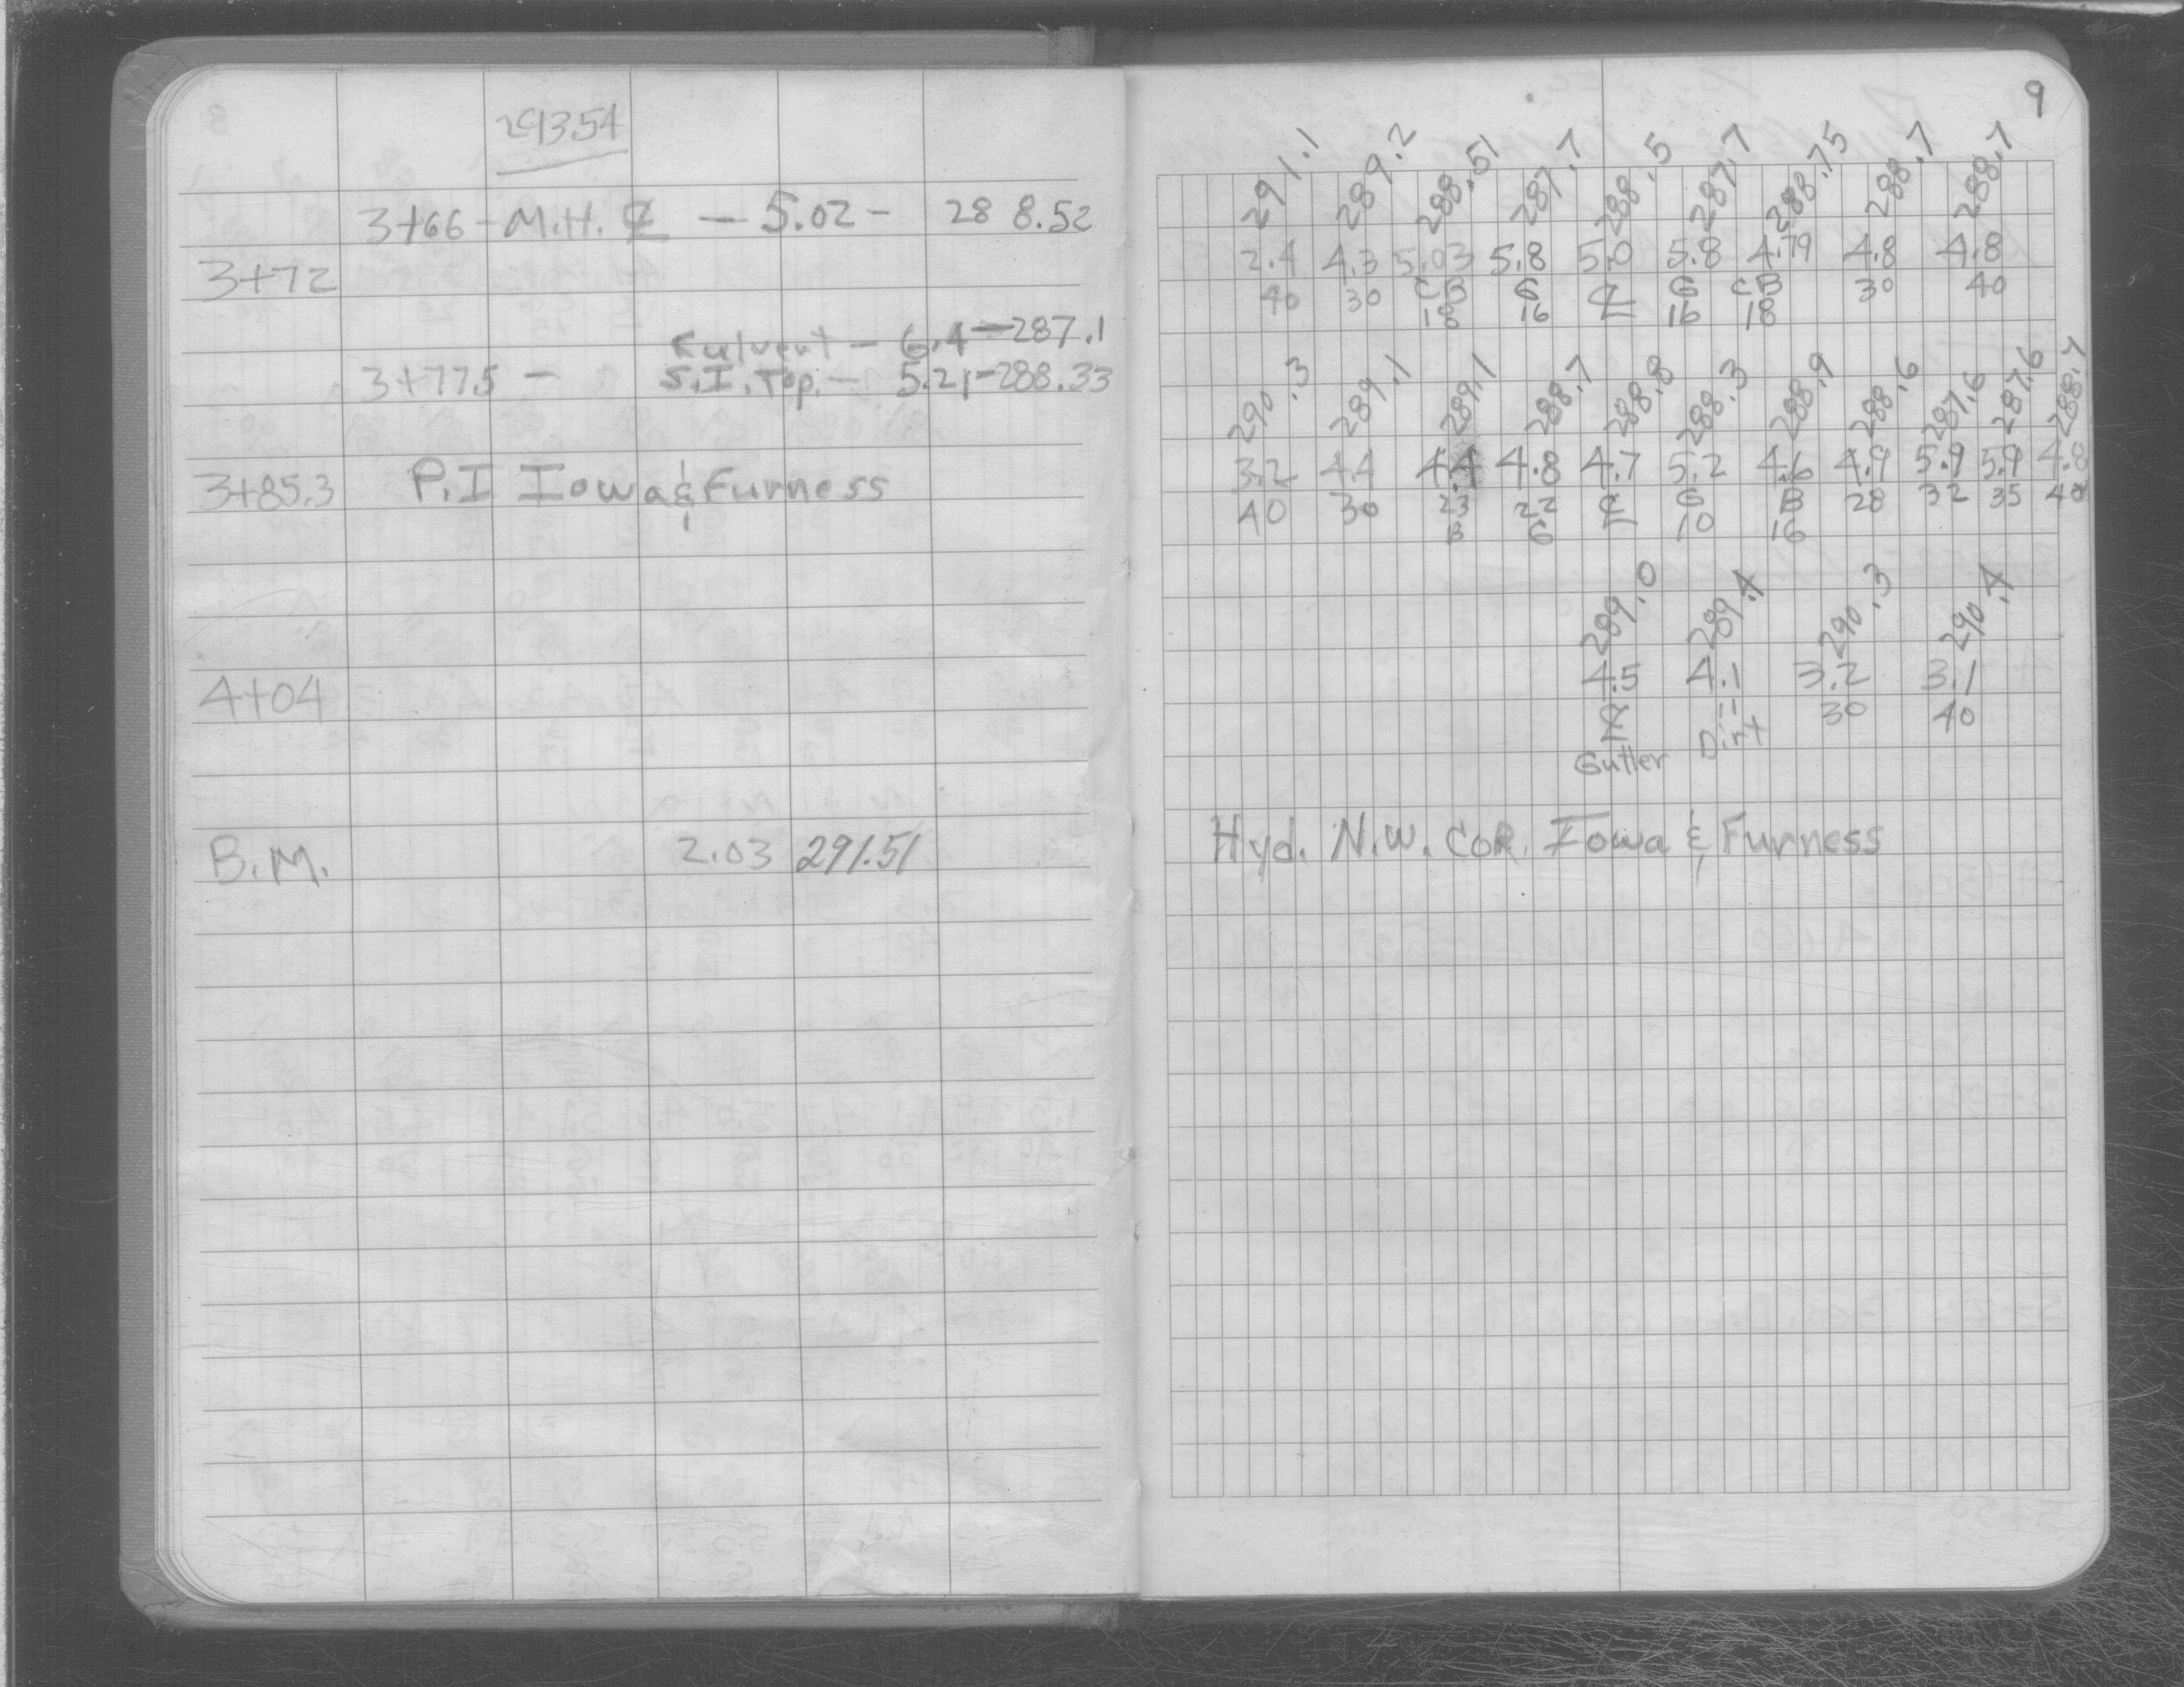 293.54
3+66 - M.H. ℄ - 5.02 - 288.52
3+72
Kulvert - 6.4 - 287.1
3+77.5 - S.I. Top. - 5.21 - 288.33
3+85.3 P.I Iowa & Furness
4+04
B.M. 2.03 291.51
9
291.1 289.2 288.51 287.7 288.5 287.7 288.75 288.7 288.7
2.4 4.3 5.03 5.8 5.0 5.8 4.79 4.8 4.8
40 30 CB G ℄ G CB 30 40
18 16 16 18
290.3 289.1 289.1 288.7 288.8 288.3 288.9 288.6 287.6 287.6 288.7
3.2 4.4 4.4 4.8 4.7 5.2 4.6 4.9 5.9 5.9 4.8
40 30 23 22 ℄ G B 28 32 35 40
B G 10 16
289.0 289.4 290.3 290.4
4.5 4.1 3.2 3.1
℄ 11 30 40
Gutter Dirt
Hyd. N.W. COR. Iowa & Furness